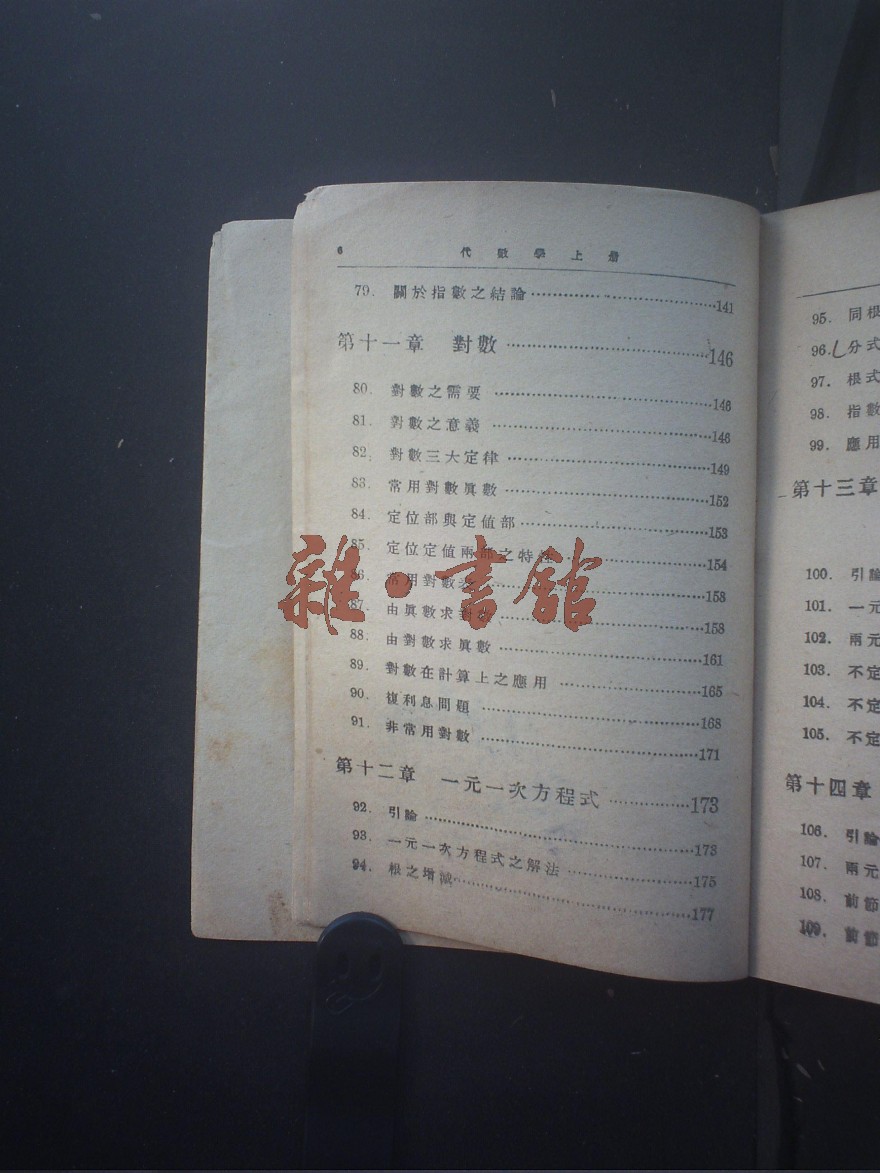 6 代數學上册
79. 關於指數之結論 141
第十一章 對數 146
80. 對數之需要 146
81. 對數之意義 146
82. 對數三大定律 149
83. 常用對數眞數 152
84. 定位部與定值部 153
85. 定位定值兩部之特 154
86. 常用對數 158
87. 由眞數求對數 158
88. 由對數求眞數 161
89. 對數在計算上之應用 165
90. 複利息問題 168
91. 非常用對數 171
第十二章 一元一次方程式 173
92. 引論 173
93. 一元一次方程式之解法 175
94. 根之增減 177
雜·書館
95. 同根
96. 分式
97. 根式
98. 指數
99. 應用
第十三章
100. 引論
101. 一元
102. 兩元
103. 不定
104. 不定
105. 不定
第十四章
106. 引論
107. 兩元
108. 前節
109. 前節